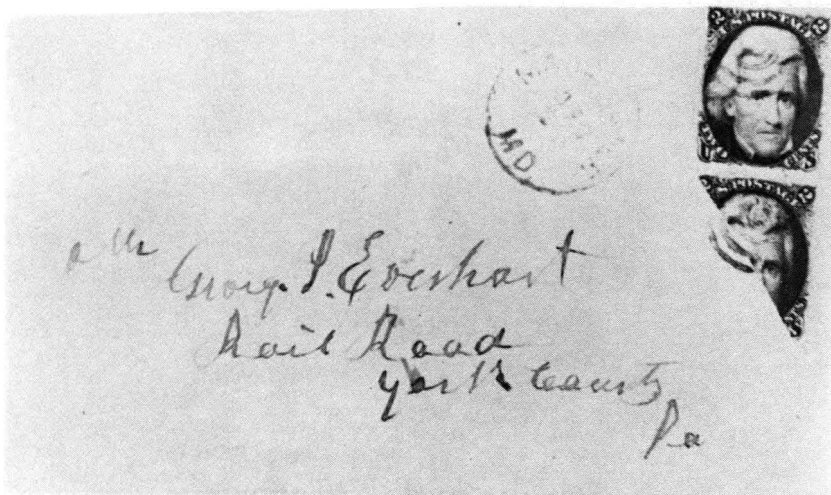 MD
U S
Mr
George S. Everhart
Rail Road
York County
Pa